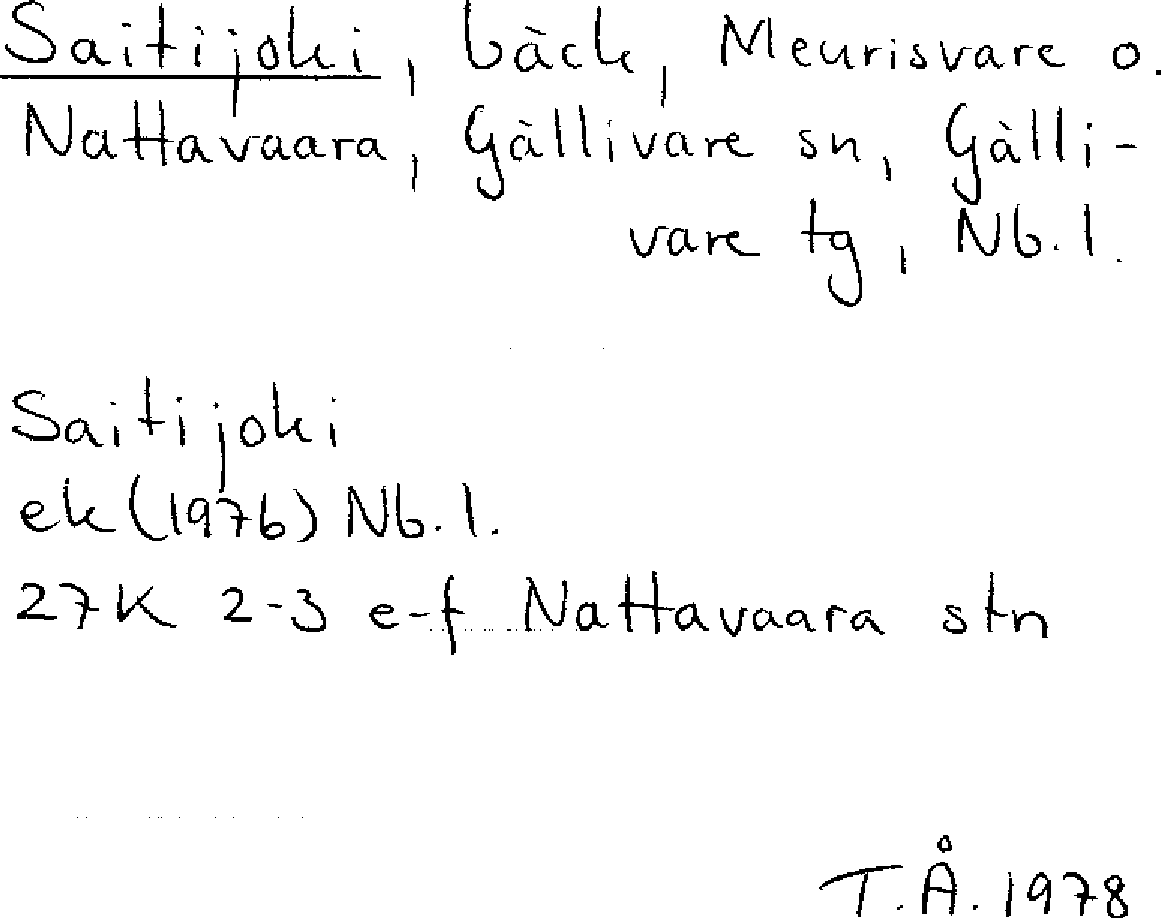 Saitijoki, bäck, Meurisvare o.
Nattavaara, Gällivare sn, Gälli-
vare tg, Nb.l.
Saitijoki
ek (1976) Nb.l.
27K 2-3 e-f Nattavaara stn
T.Å. 1978